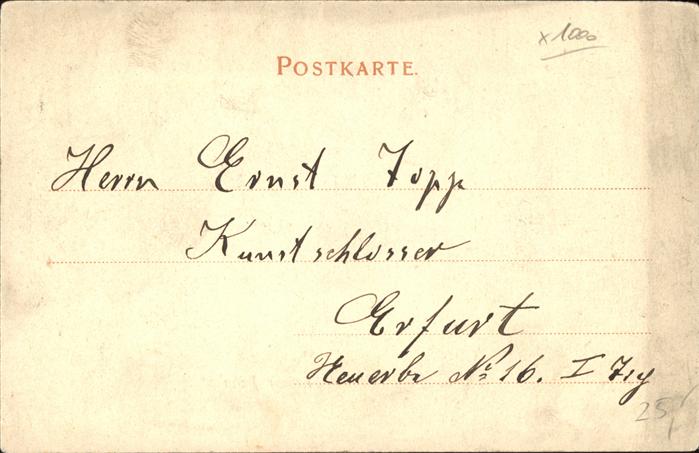 x 1000
POSTKARTE.
Herrn Ernst Topp
Kunstschlosser
Erfurt
Neuerbe No 16. I
25,